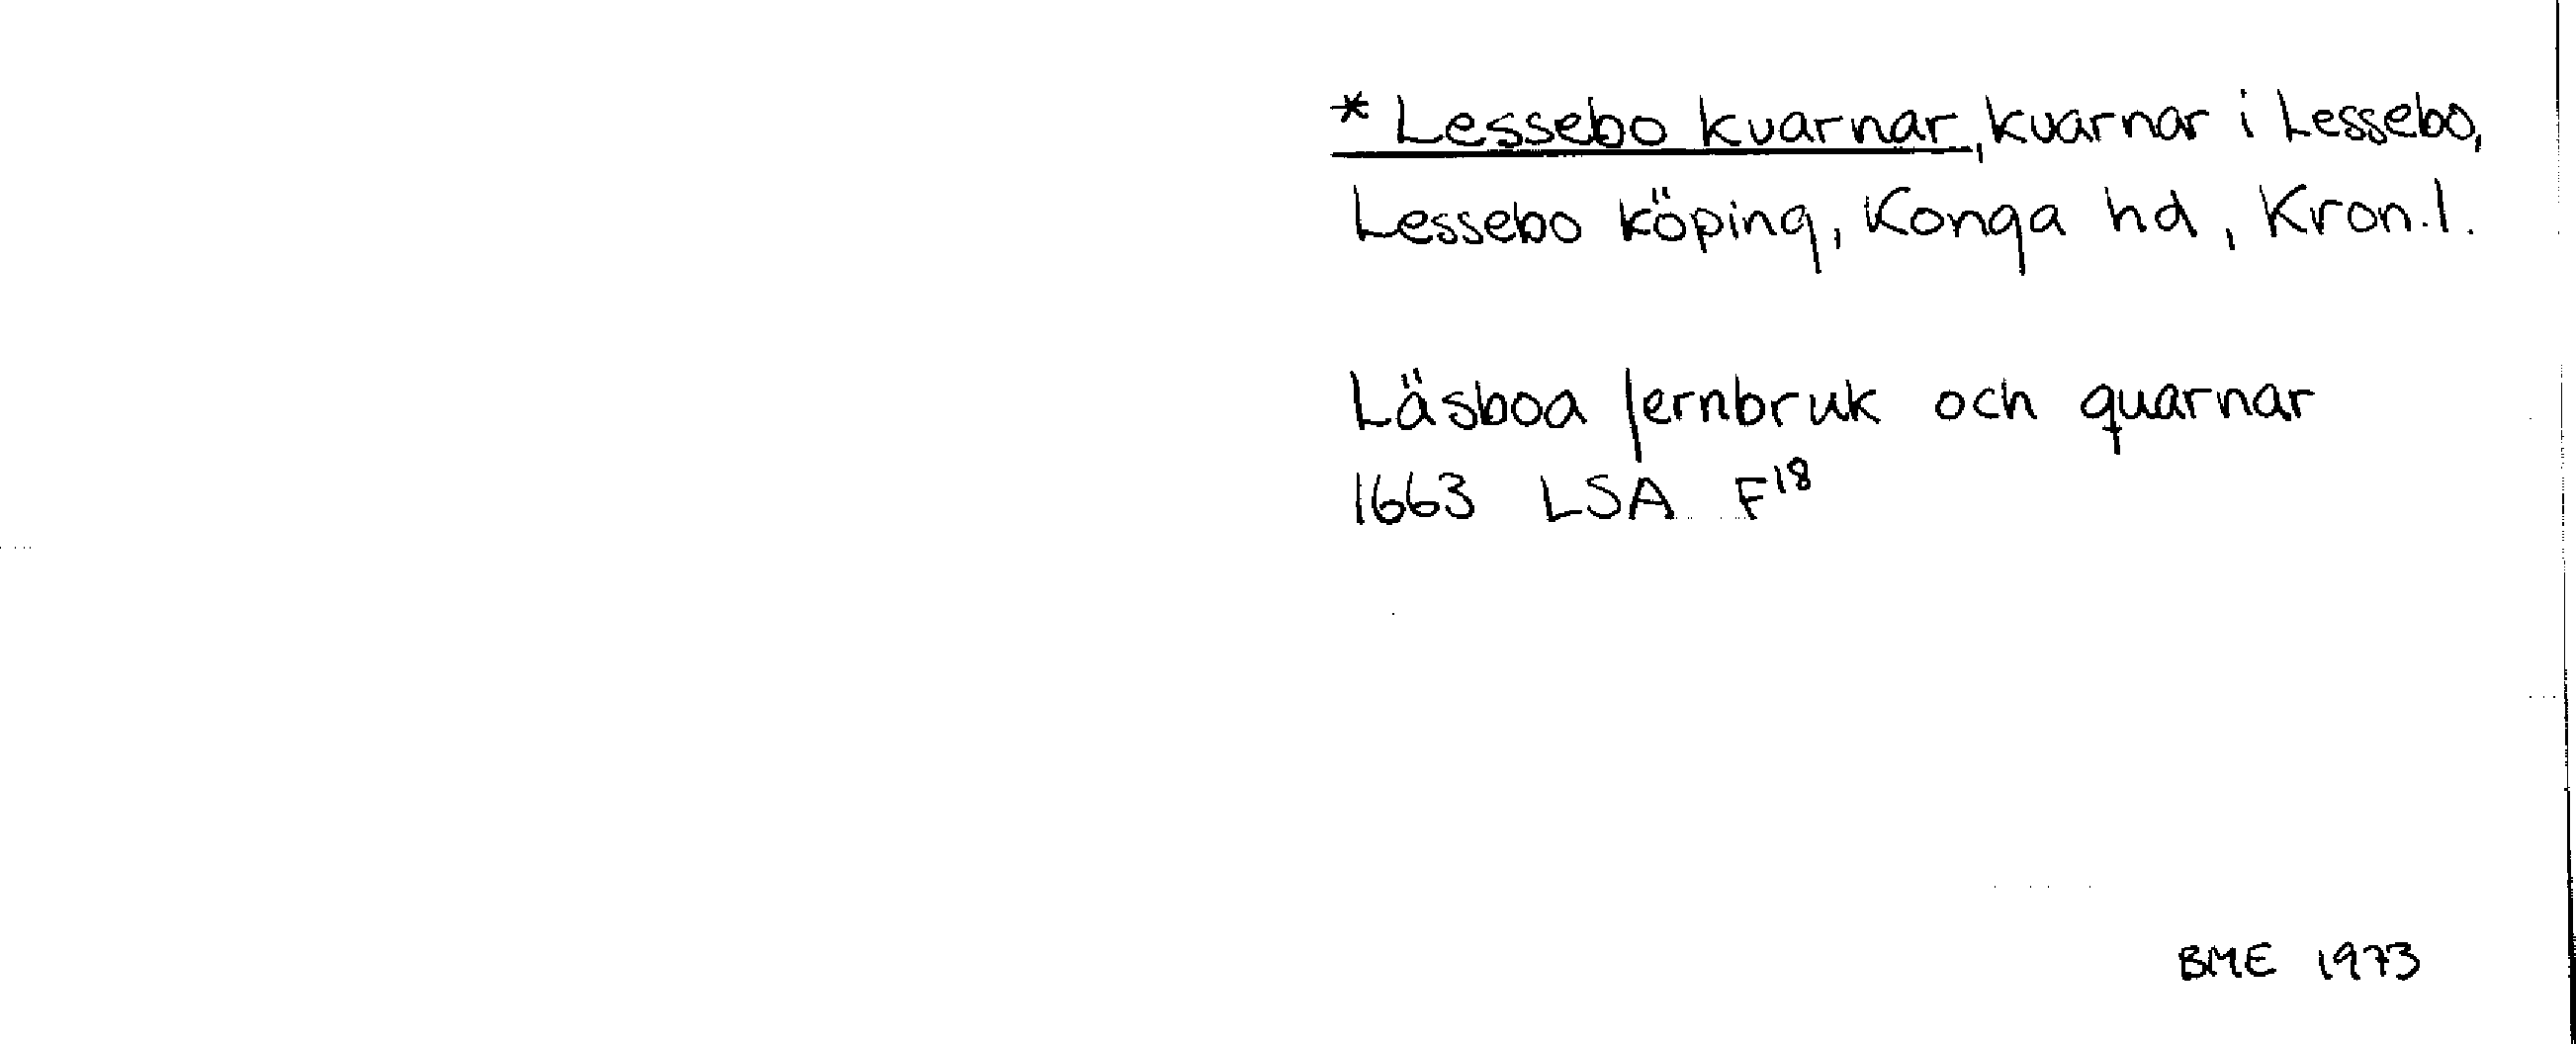 * Lessebo kvarnar, kvarnar i Lessebo,
Lessebo köping, Konga hd, Kron.l.
Läsboa Jernbruk och quarnar
1663 LSA F18
BME 1973